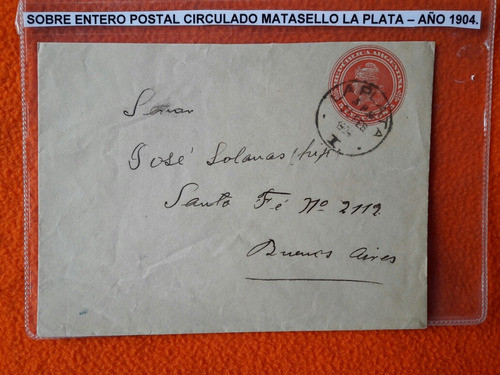 SOBRE ENTERO POSTAL CIRCULADO MATASELLO LA PLATA – AÑO 1904.
REPUBLICA ARGENTINA
LA PLATA
Señor
José Solanas (hijo)
Santa Fé Nº 2112
Buenos Aires